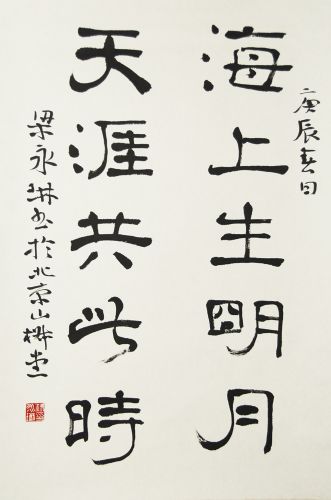 庚辰春日
海上生明月
天涯共此时
梁永琳书于北京山桥堂